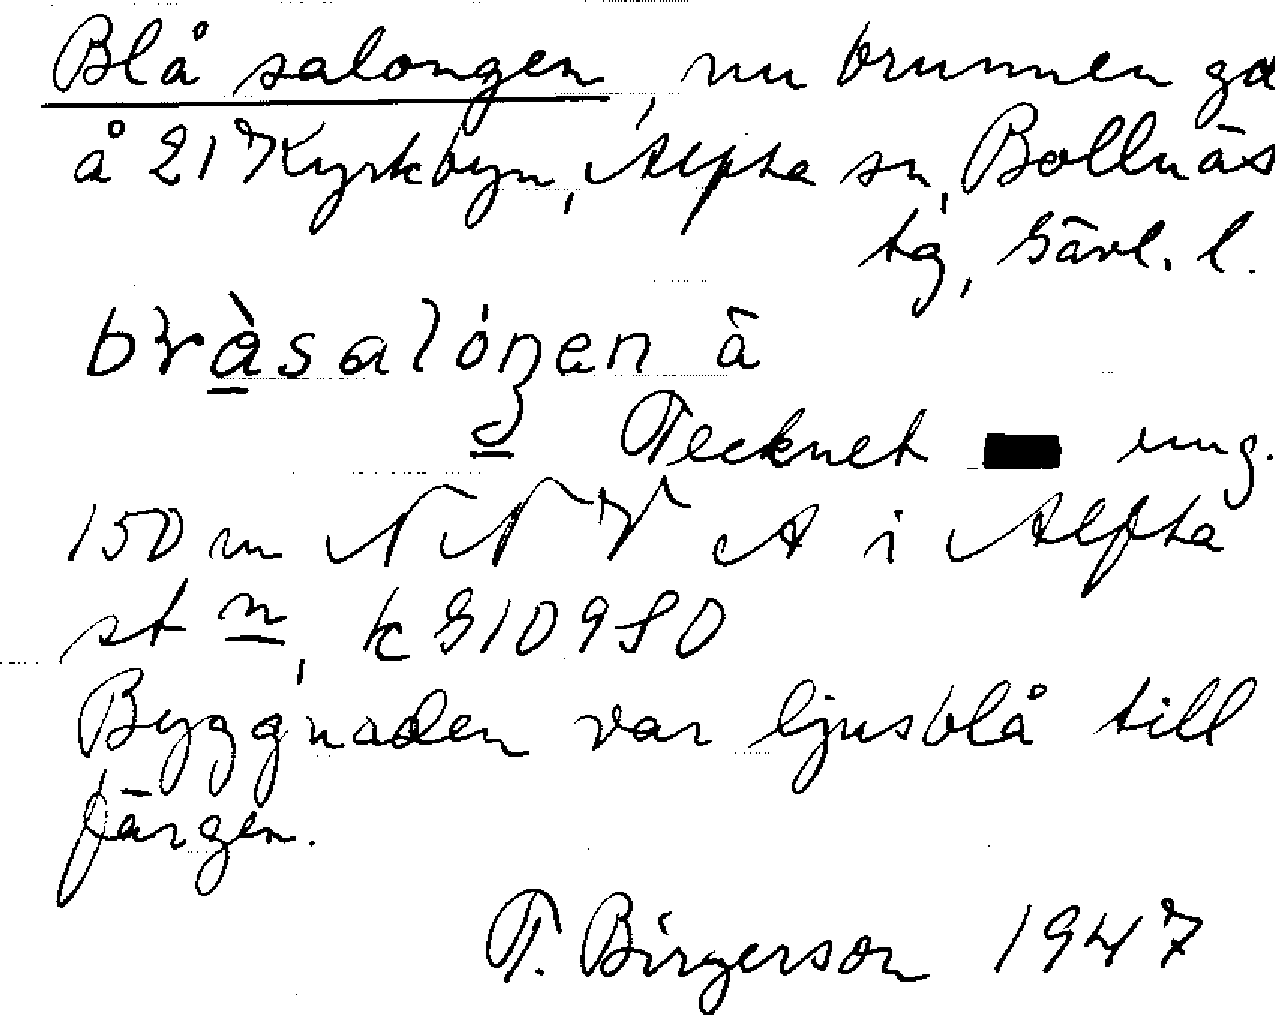 Blå salongen, nu brunnen gd
å 21⁷ Kyrkbyn, Alfta sn, Bollnäs
tg, Gävl. l.
bràsalóŋen ä
Tecknet ■ ung.
150 m NNV A i Alfta
st n, kG1098D
Byggnaden var ljusblå till
färgen.
T. Birgerson 1947